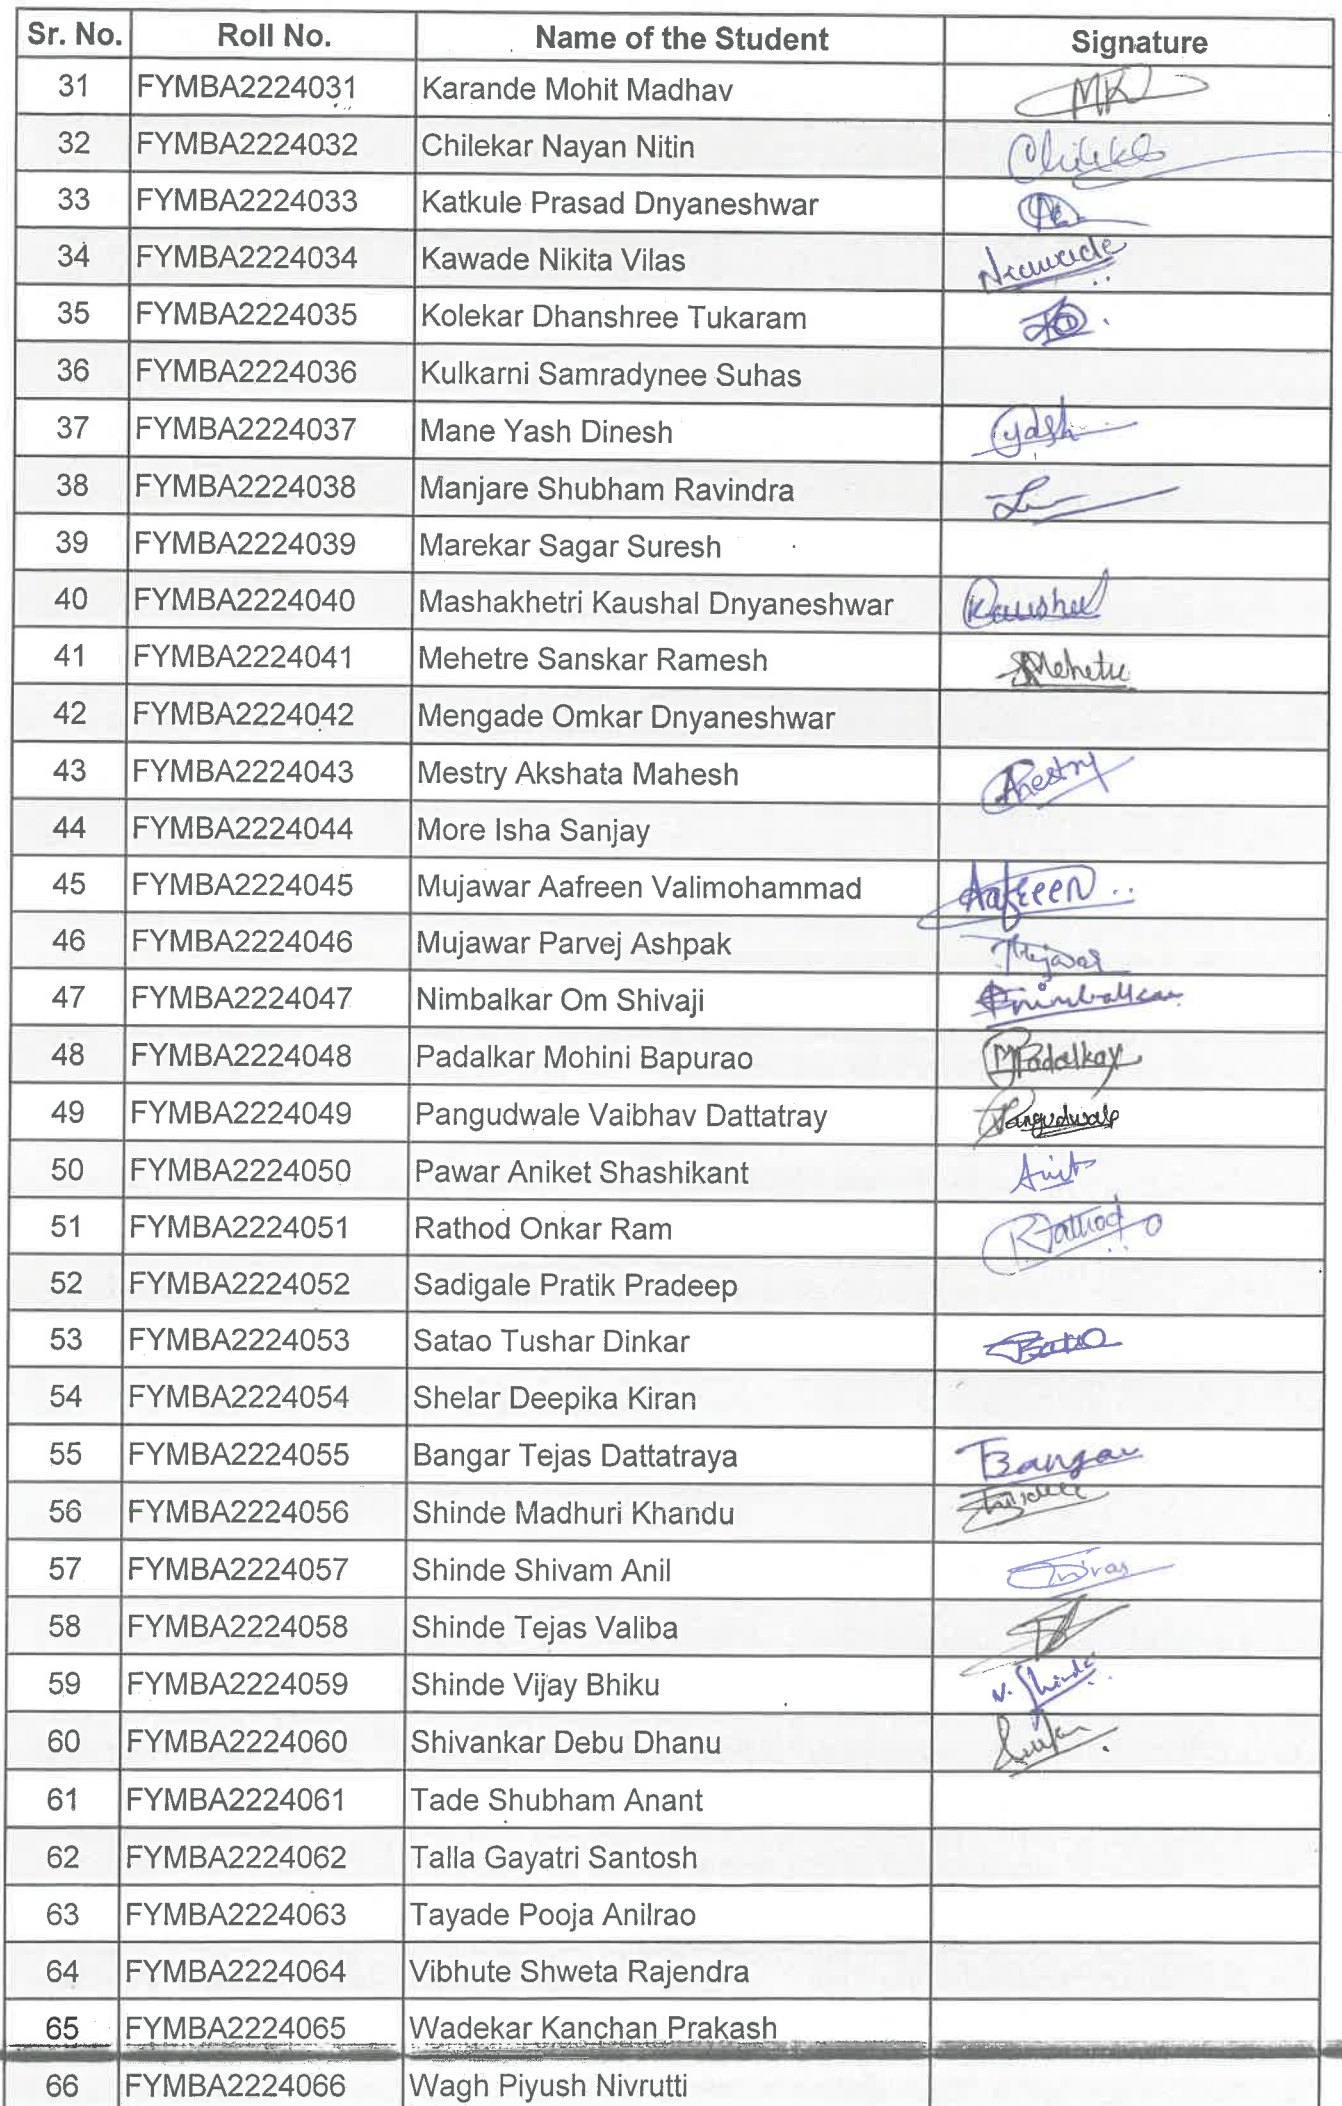 Sr. No. Roll No. Name of the Student Signature
31 FYMBA2224031 Karande Mohit Madhav MK
32 FYMBA2224032 Chilekar Nayan Nitin
33 FYMBA2224033 Katkule Prasad Dnyaneshwar
34 FYMBA2224034 Kawade Nikita Vilas
35 FYMBA2224035 Kolekar Dhanshree Tukaram
36 FYMBA2224036 Kulkarni Samradynee Suhas
37 FYMBA2224037 Mane Yash Dinesh Yash
38 FYMBA2224038 Manjare Shubham Ravindra
39 FYMBA2224039 Marekar Sagar Suresh
40 FYMBA2224040 Mashakhetri Kaushal Dnyaneshwar Kaushal
41 FYMBA2224041 Mehetre Sanskar Ramesh
42 FYMBA2224042 Mengade Omkar Dnyaneshwar
43 FYMBA2224043 Mestry Akshata Mahesh
44 FYMBA2224044 More Isha Sanjay
45 FYMBA2224045 Mujawar Aafreen Valimohammad Aafreen
46 FYMBA2224046 Mujawar Parvej Ashpak
47 FYMBA2224047 Nimbalkar Om Shivaji
48 FYMBA2224048 Padalkar Mohini Bapurao MPadalkar
49 FYMBA2224049 Pangudwale Vaibhav Dattatray Pangudwale
50 FYMBA2224050 Pawar Aniket Shashikant
51 FYMBA2224051 Rathod Onkar Ram Rathod
52 FYMBA2224052 Sadigale Pratik Pradeep
53 FYMBA2224053 Satao Tushar Dinkar
54 FYMBA2224054 Shelar Deepika Kiran
55 FYMBA2224055 Bangar Tejas Dattatraya TBangar
56 FYMBA2224056 Shinde Madhuri Khandu
57 FYMBA2224057 Shinde Shivam Anil
58 FYMBA2224058 Shinde Tejas Valiba
59 FYMBA2224059 Shinde Vijay Bhiku V. Shinde
60 FYMBA2224060 Shivankar Debu Dhanu
61 FYMBA2224061 Tade Shubham Anant
62 FYMBA2224062 Talla Gayatri Santosh
63 FYMBA2224063 Tayade Pooja Anilrao
64 FYMBA2224064 Vibhute Shweta Rajendra
65 FYMBA2224065 Wadekar Kanchan Prakash
66 FYMBA2224066 Wagh Piyush Nivrutti